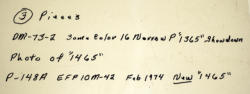 ③ Pieces
DM-73-2 Some Color 16 Narrow P "1365" Showdown
Photo of "1465"
P-148A EFP 10M-42 Feb 1974 New "1465"